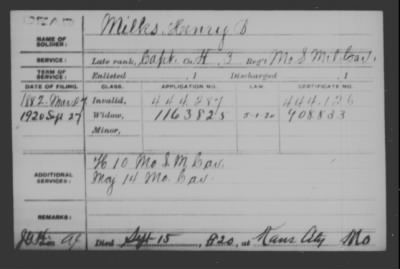 DEAD
NAME OF SOLDIER: Milks, Henry D
SERVICE: Late rank, Capt. Co. H, 3 Reg't Mo S M. Cav.
TERM OF SERVICE: Enlisted , 1 Discharged , 1
DATE OF FILING. CLASS. APPLICATION NO. LAW. CERTIFICATE NO.
1882. Mar Invalid, 444.287 444.126
1920 Sept 27 Widow, 1163825 5-1-20 908833
Minor,
ADDITIONAL SERVICES: H 10 Mo S M Cav.
Maj 14 Mo Cav.
REMARKS:
Died Sept 15, 1920, at Kans City Mo